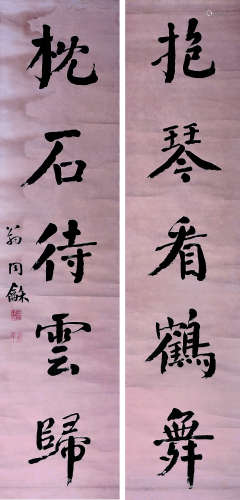 抱琴看鶴舞
枕石待雲歸
翁同龢